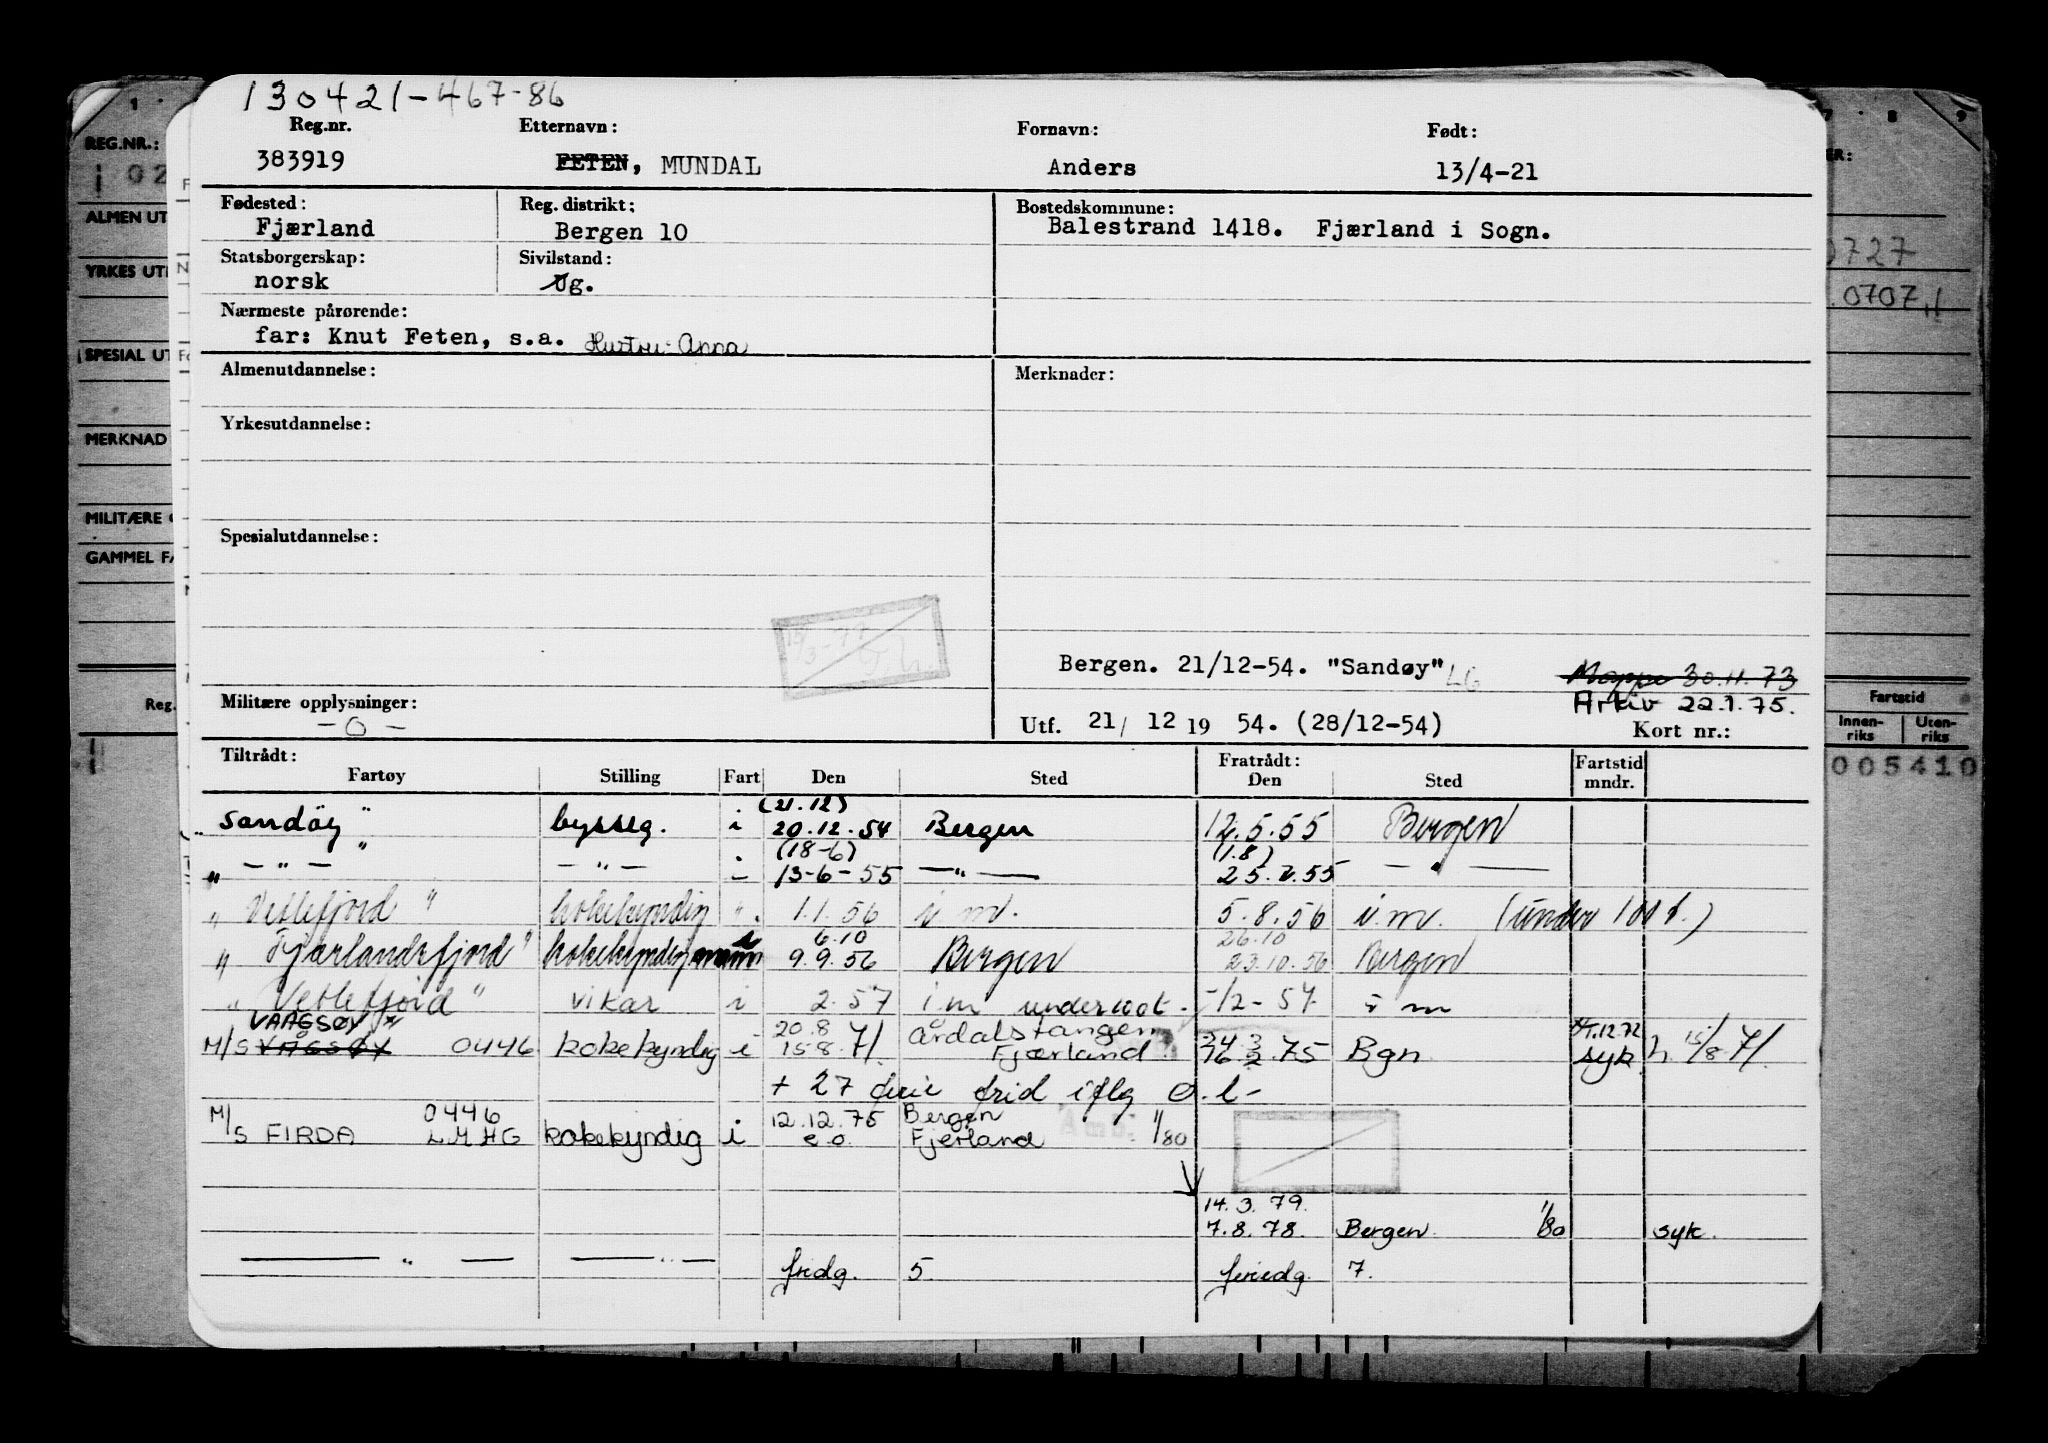 130421-467-86
Reg.nr. Etternavn: Fornavn: Født:
383919 FETEN, MUNDAL Anders 13/4-21
Fødested: Reg. distrikt: Bostedskommune:
Fjærland Bergen 10 Balestrand 1418. Fjærland i Sogn.
Statsborgerskap: Sivilstand:
norsk g.
Nærmeste pårørende:
far: Knut Feten, s.a. Hustru: Anna
Almenutdannelse: Merknader:
Yrkesutdannelse:
Spesialutdannelse:
Bergen. 21/12-54. "Sandøy" LG Mappe 30.11.73
Militære opplysninger: Arkiv 22.1.75.
-0- Utf. 21/ 12 19 54. (28/12-54) Kort nr.:
Tiltrådt: Fratrådt: Fartstid
Fartøy Stilling Fart Den Sted Den Sted mndr.
(21.12)
"Sandøy" bysseg. i 20.12.54 Bergen 12.5.55 Bergen
(18-6) (1.8)
" — " — " — " — - 13-6-55 — " — 25.7.55 — " —
" Vetlefjord " kokekyndig " 1.1.56 i.m. 5.8.56 i.m. (under 100 t.)
6.10 26.10
" Fjærlandsfjord " kokekyndig i 9.9.56 Bergen 23.10.56 Bergen
" Vetlefjord " vikar i 2.57 i.m under 100t. -/2-57 i m
VAAGSØY 20.8 Årdalstangen 24.3 1.12.72
M/S VÅGSØY 0446 kokekyndig i 15.8.71. Fjærland 16.2.75 Bgn syk h. 15/8-71.
+ 27 frid iflg
M/ 0446 12.12.75 Bergen
S FIRDA LMHG kokekyndig i e.o. Fjerland 1/80
14.3.79.
7.8.78. Bergen 1/80 syk.
— " — — " — fridg. 5 feriedg. 7.
1 7 8 9
REG.NR.:
102
ALMEN UT
YRKES UT
SPESIAL UT
MERKNAD
MILITÆRE
GAMMEL FA
Reg.
ER:
0727
0707
Fartstid
Innen-riks Uten-riks
005410